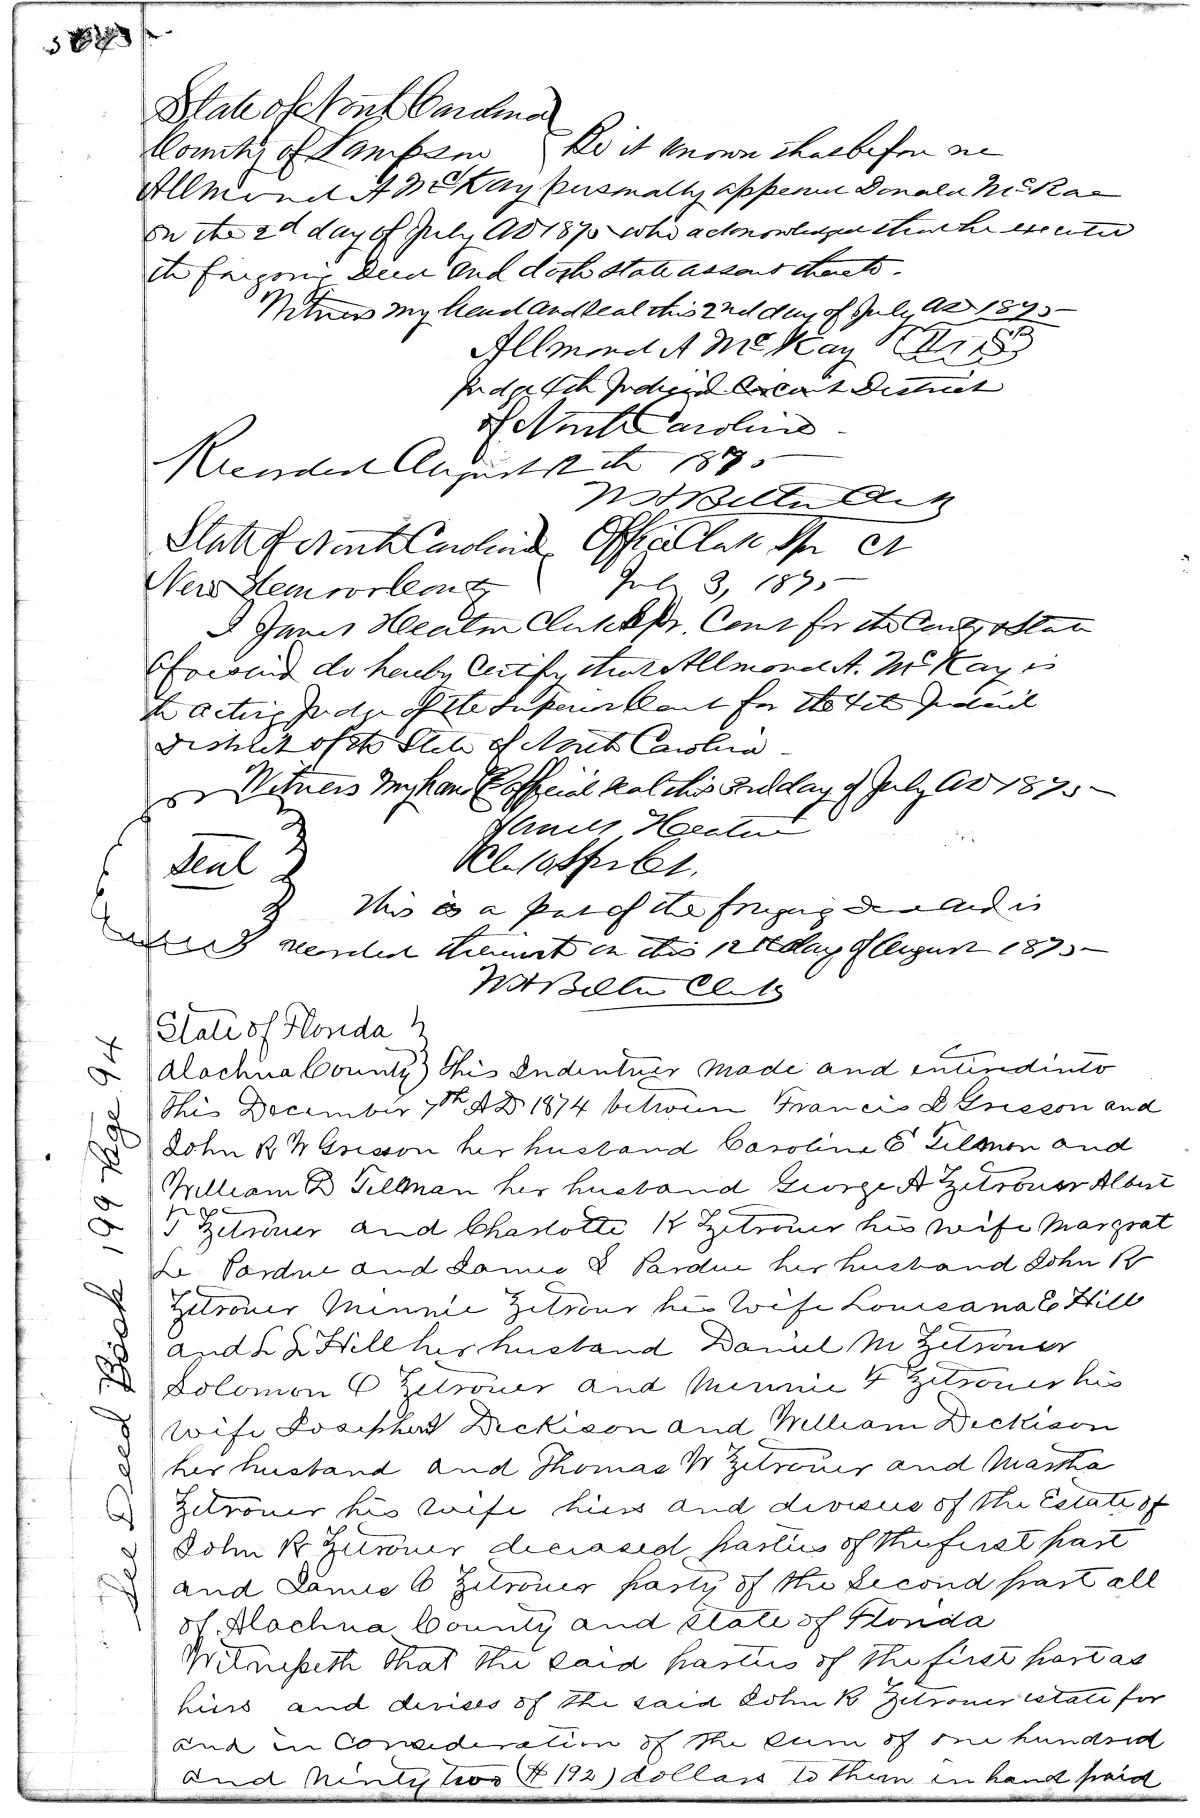 State of North Carolina
County of Sampson Be it known that before me
Allmond A McKay personally appeared Donald McRae
on the 2d day of July AD 1875 who acknowledged that he executed
the foregoing Deed and doth state assent thereto.
Witness my hand and seal this 2nd day of July AD 1875
Allmond A McKay
Judge 4th Judicial Circuit District
of North Carolina
Recorded August 12th 1875
Clerk
State of North Carolina Office Clerk Spr Ct
New Hanover County July 3, 1875
I James Heaton Clerk Spr. Court for the County & State
aforesaid do hereby certify that Allmond A. McKay is
the acting Judge of the Superior Court for the 4th Judicial
District of the State of North Carolina
Witness my hand & official seal this 3rd day of July AD 1875
James Heaton
Seal Clerk Spr Ct.
This is a part of the foregoing deed and is
recorded therewith on this 12th day of August 1875
Clerk
See Deed Book 199 Page 94
State of Florida
Alachua County This Indentuer made and entered into
this December 7th AD 1874 between Francis D Grisson and
John R W Grisson her husband Caroline E Tillmon and
William D Tillman her husband George A Zetrouer Albert
T Zetrouer and Charlotte K Zetrouer his wife Margrat
Le Pardue and James S Pardue her husband John R
Zetrouer Minnie Zetrour his wife Louisana E Hill
and L L Hill her husband Daniel M Zetrouer
Solomon C Zetrouer and Minnie F Zetrouer his
wife Josephert Dickison and William Dickison
her husband and Thomas W Zetrouer and Martha
Zetrouer his wife hiers and divisees of the Estate of
John R Zetrouer deceased parties of the first part
and James C Zetrouer party of the Second part all
of Alachua County and State of Florida
Witnesseth that the said parties of the first part as
hiers and divises of the said John R Zetrouer estate for
and in consideration of the sum of one hundred
and ninty two ($192) dollars to them in hand paid